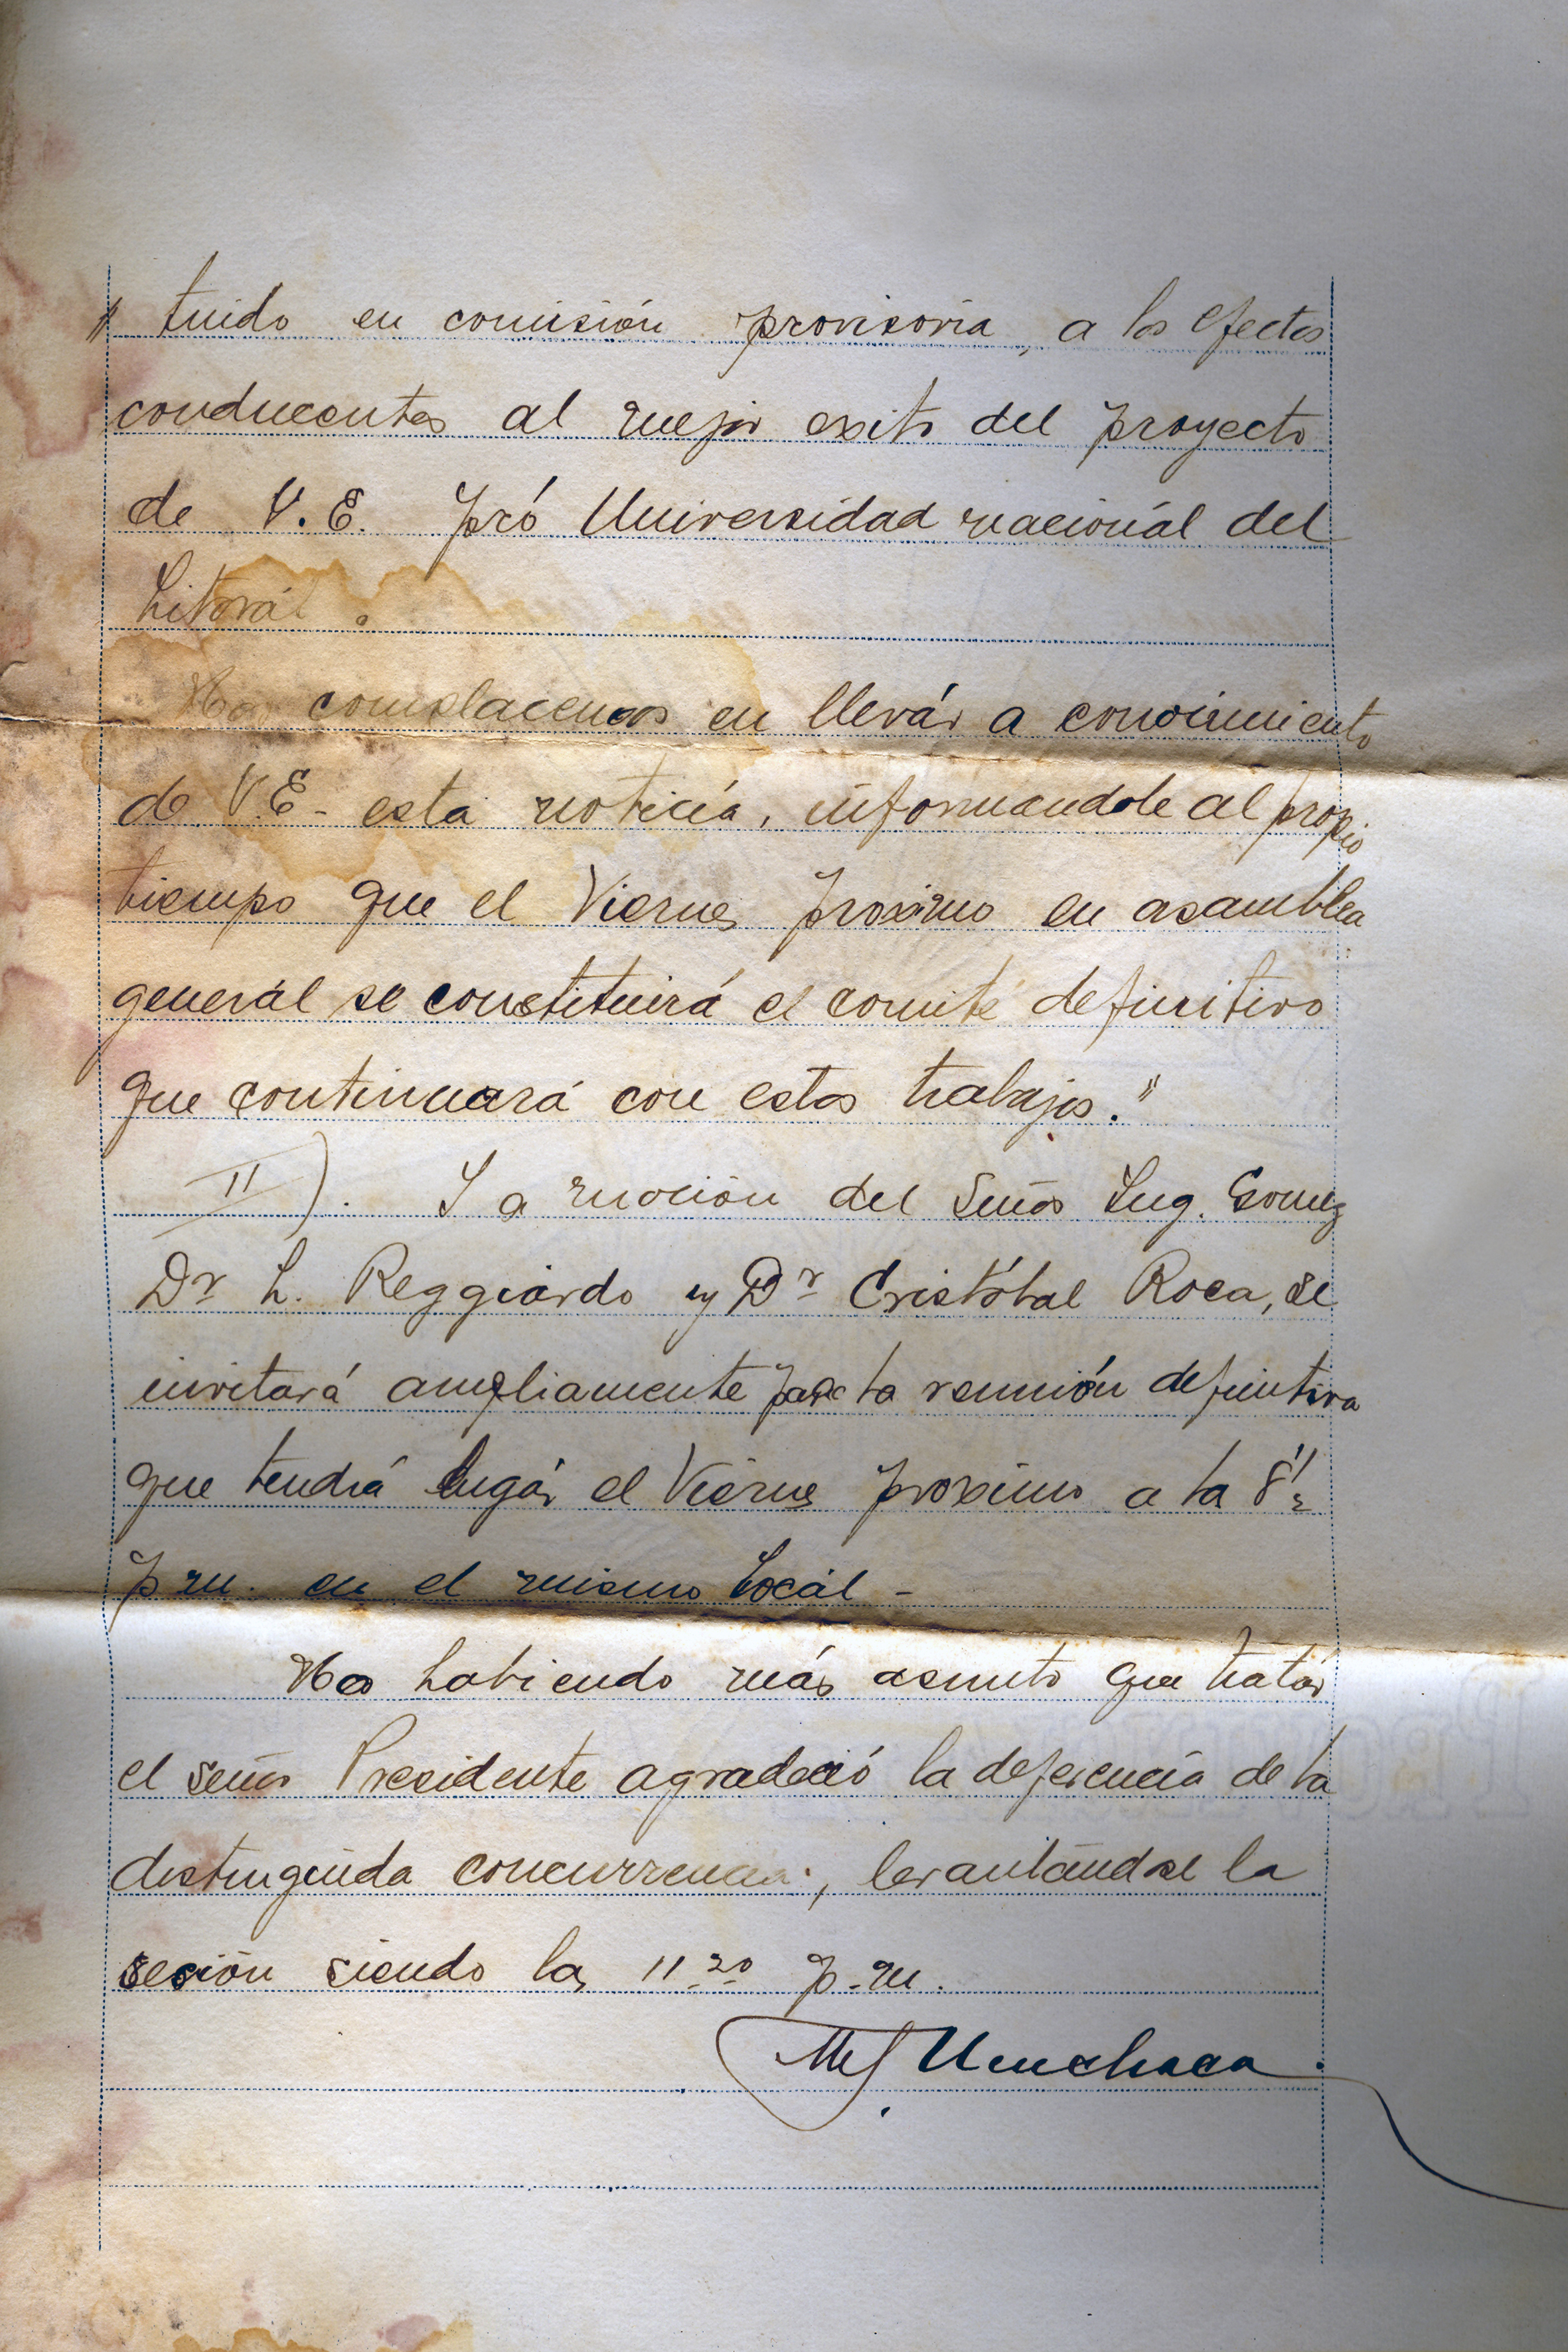 " tuido en comisión provisoria, a los efectos
conducentes al mejor exito del proyecto
de V.E. pró Universidad nacionál del
Litorál.
Nos complacemos en llevár a conocimiento
de V.E- esta noticía, informandole al propio
tiempo que el Viernes proximo en asamblea
generál se constituirá el comité definitivo
que continuará con estos trabajos."
II). I a moción del Señor Ing. Gomez
Dr L. Reggiardo y Dr Cristóbal Roca, se
invitará ampliamente para la reunión definitiva
que tendrá lugár el Viernes proximo a la 8 1/2
p m. en el mismo Locál -
No habiendo más asunto que tratár
el señor Presidente agradeció la deferencia de la
distinguida concurrencia, levantándose la
sesión siendo las 11 20 p.m.
Menchaca